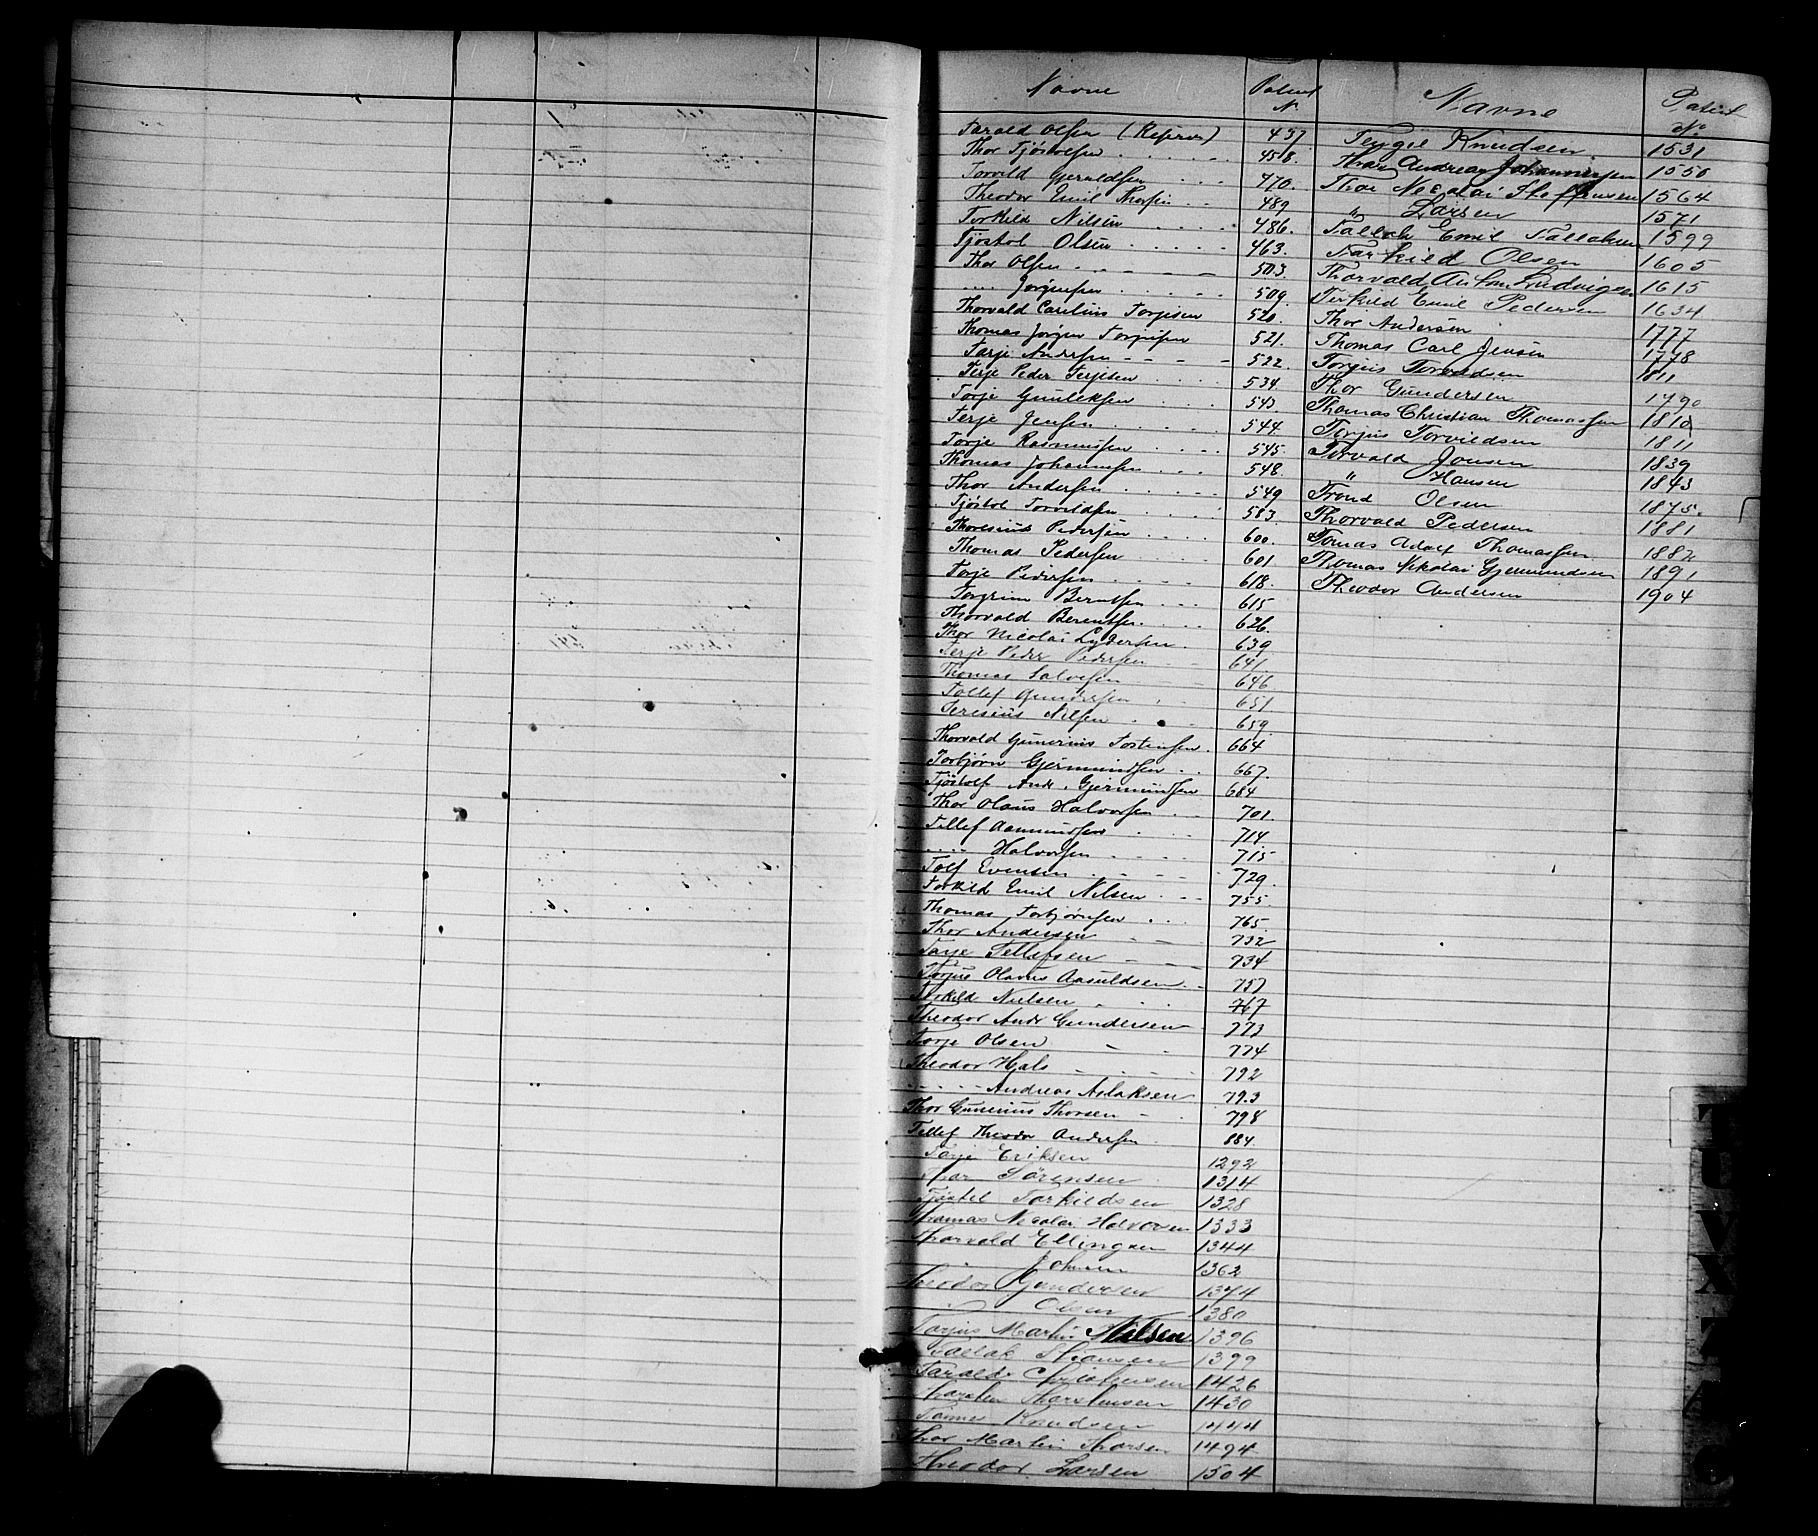 Navne Patent N.
Tarald Olsen (Reserve) 457.
Thor Tjöstolsen 458.
Torvild Geruldsen 470.
Theodor Emil Thorsen 489
Torkild Nilsen 486.
Tjöstol Olsen 463.
Thor Olsen 503.
.... Jörginsen 509.
Thorvald Carelius Torjesen 520.
Thomas Jörgen Torjusen 521.
Tarje Andersen 522.
Terje Peder Terjesen 534.
Torje Gunleksen 543.
Terje Jensen 544.
Torje Rasmussen 545.
Thomas Johannsen 548.
Thor Andersen 549
Tjöstol Torvildsen 583.
Thoresius Pedersen 600.
Thomas Pedersen 601.
Torje Pedersen 618.
Torgrim Berntsen 615
Thorvald Berentsen 626.
Thor Nicolai Lydersen 639
Terje Peder Pedersen 641
Thomas Salvesen 646
Tollef Gundersen 651
Teresius Nilsen 659.
Thorvald Gunerius Tostensen 664
Torbjörn Gjermundsen 667.
Tjöstolf Andr. Gjermundsen 684
Thor Olaus Halvorsen 701.
Tellef Aanundsen 714.
.... Halvorsen 715
Tolf Evensen 729.
Torkild Emil Nilsen 755.
Thomas Torbjörnsen 765.
Thor Andersen 732
Tarje Tellefsen 734
Torjus Olaves Aasuldsen 757
Terkild Nielsen 767
Theodor Andr Gundersen 773
Torje Olsen 774
Theodor Hals 792
..... Andreas Aslaksen 793
Thor Gunerius Thorsen 798
Tellef Theodor Andersen 884
Tarje Eriksen 1292
Thor Sörensen 1314
Tjöstel Tarkildsen 1328
Thomas Nicolai Halvorsen 1333
Thorvald Ellingsen 1344
Johnsen 1362
Theodor Gundersen 1374
Olsen 1380
Torjus Martin Nilsen 1396
Tallak Stiansen 1399
Tarald Christensen 1426
Thorsten Thorstensen 1430
Tönnes Knudsen 1444
Thor Martin Thorsen 1494
Theodor Larsen 1504
Navne Patent No
Terjgei Knudsen 1531
Thor Andreas Johannessen 1550
Thor Nicolai Steffensen 1564
" Larsen 1571
Tallak Emil Tallaksen 1599
Tarkild Olsen 1605
Thorvald Anton Ludvigsen 1615
Terkild Emil Pedersen 1634
Thor Andersen 1777
Thomas Carl Jensen 1778
Torjus Torvildsen 1811
Thor Gundersen 1790
Thomas Christian Thomassen 1810
Torjus Torvildsen 1811
Torvald Jonsen 1839
" Hansen 1843
Trond Olsen 1875
Thorvald Pedersen 1881
Tomas Adolf Thomassen 1882
Thomas Nikolai Gjermundsen 1891
Theodor Andersen 1904
T
U
V
X
Z